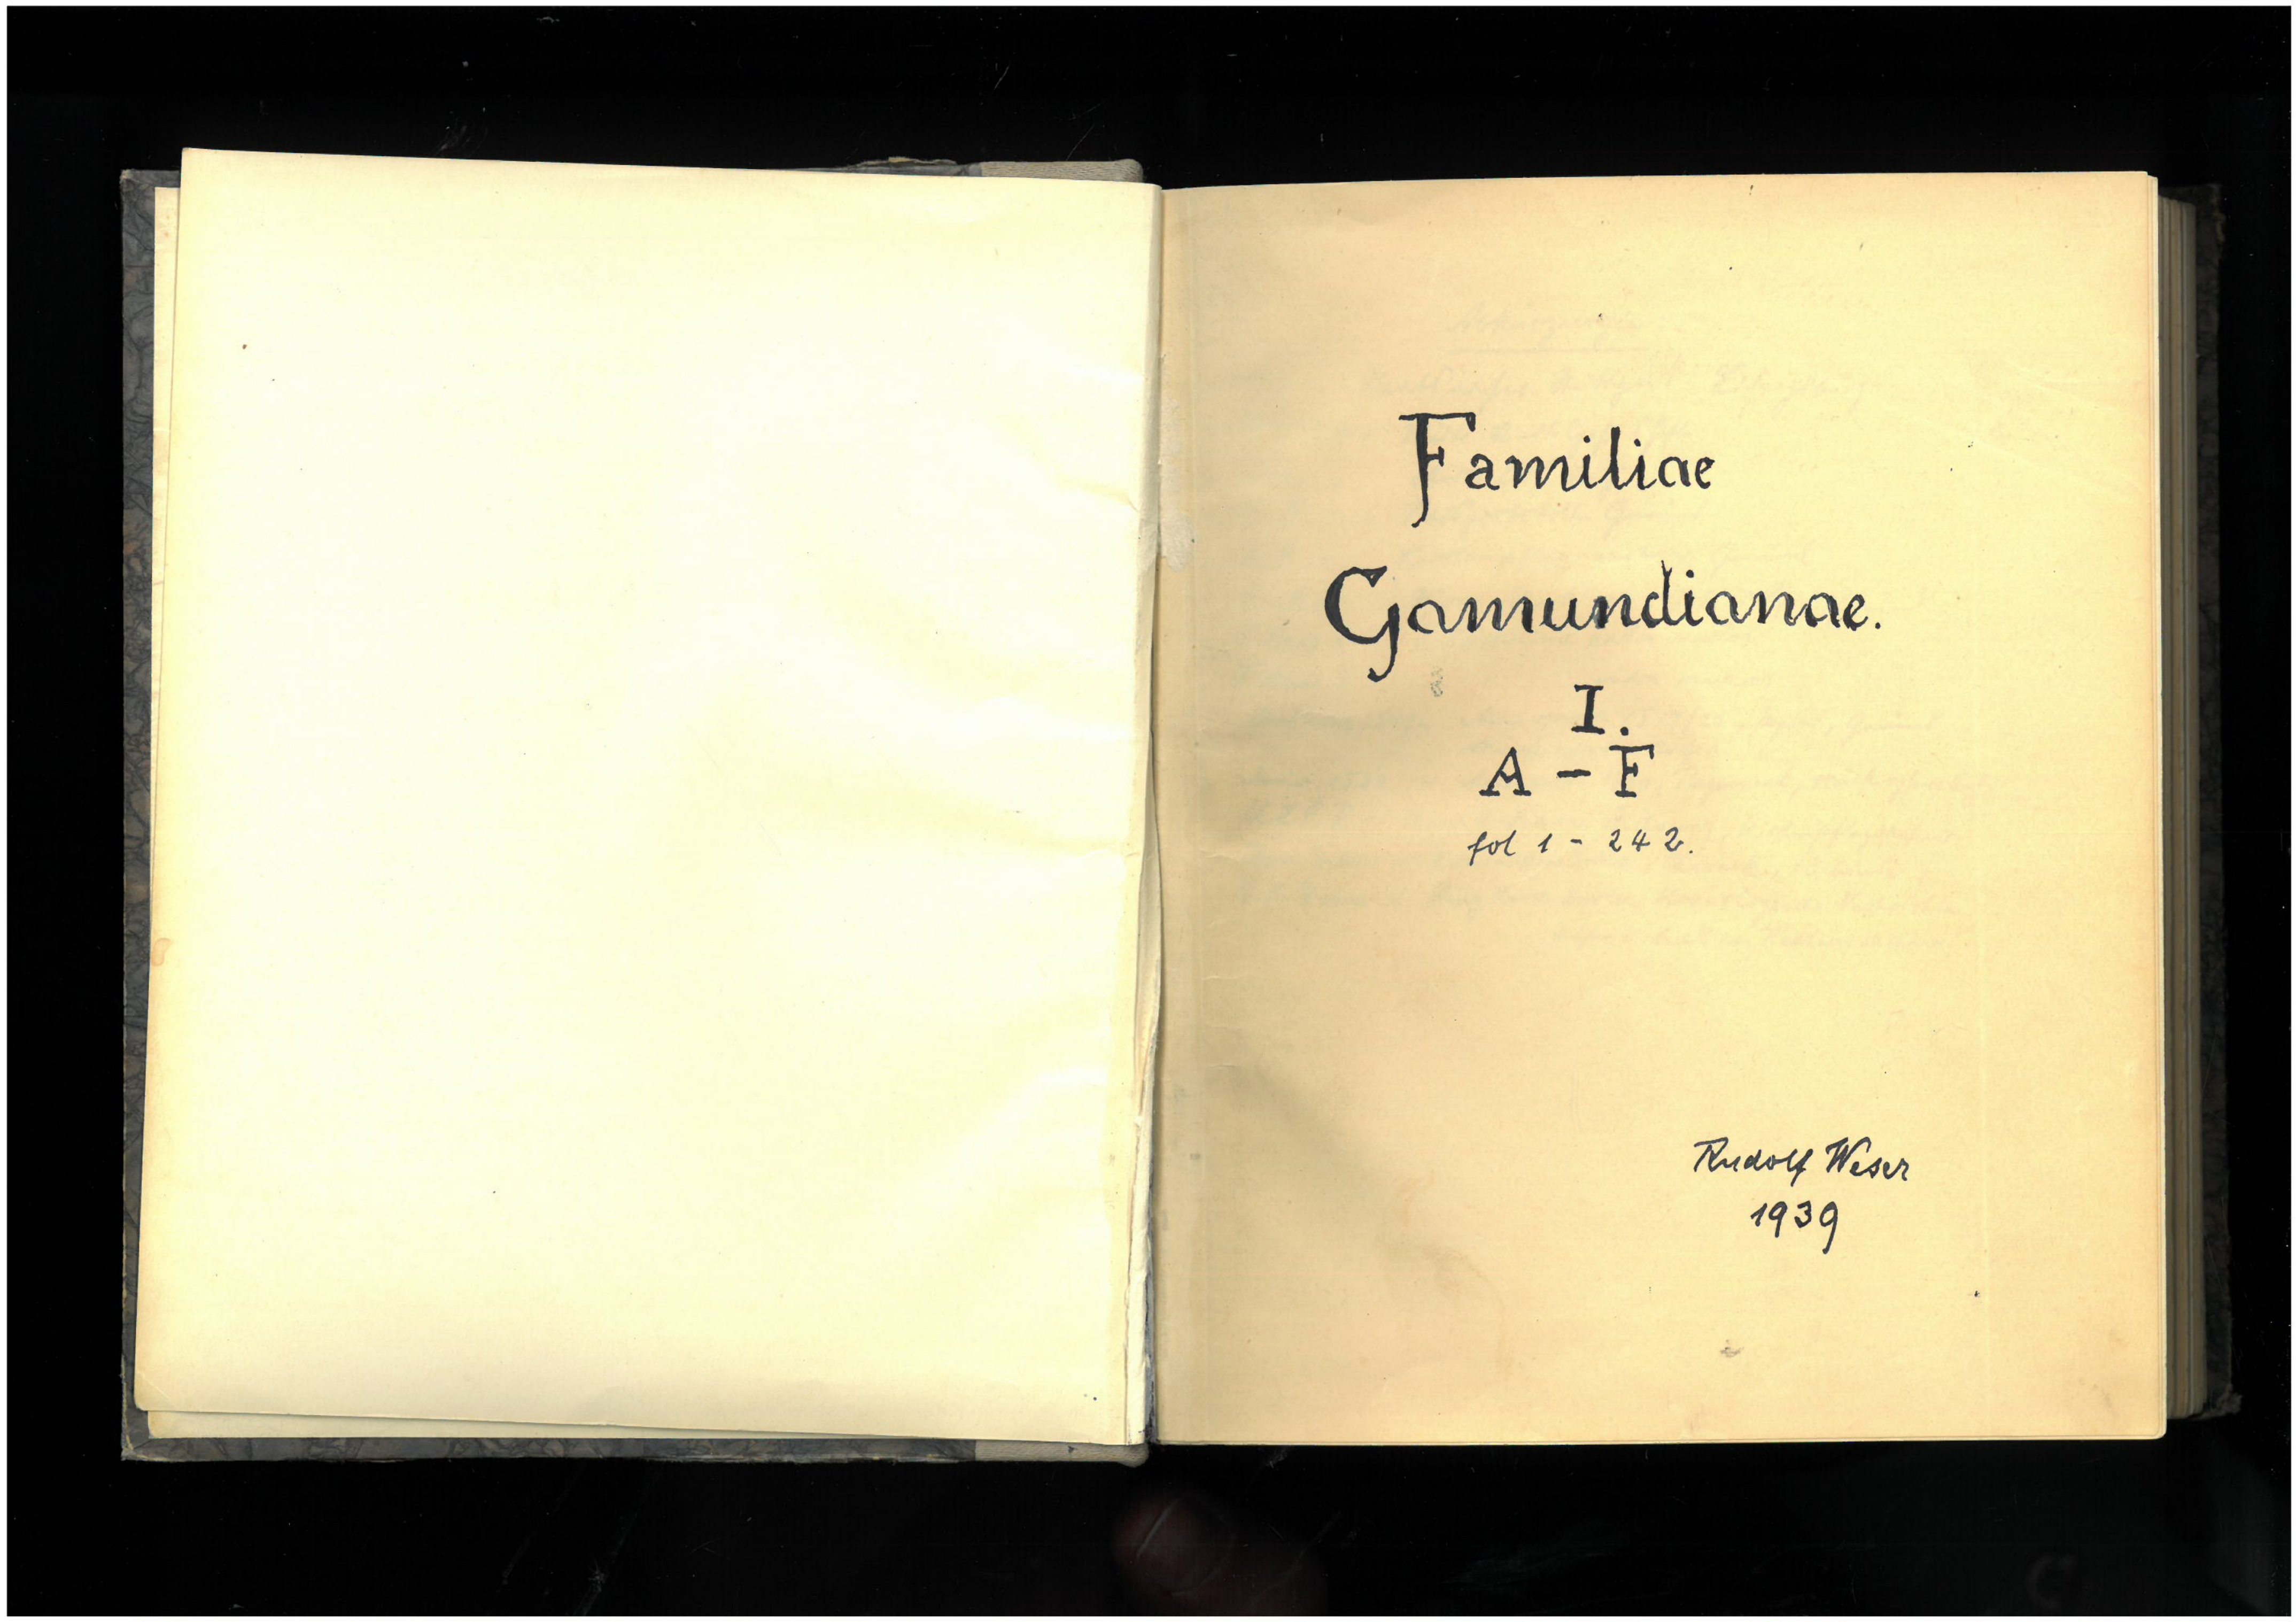 Familiae
Gamundianae.
I.
A - F
fol 1 - 242.
Rudolf Weser
1939